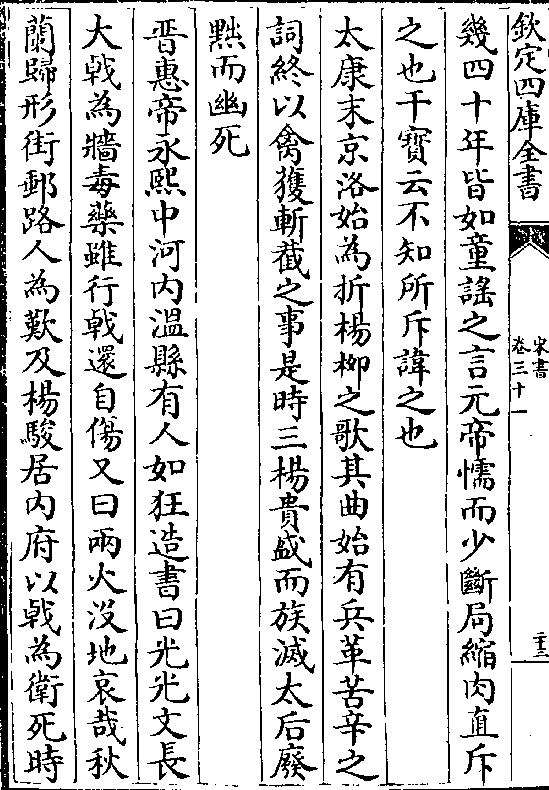 欽定四庫全書
宋書
卷三十一
二十三
幾四十年皆如童謠之言元帝懦而少斷局縮肉直斥
之也干寶云不知所斥諱之也
太康末京洛始為折楊柳之歌其曲始有兵革苦辛之
詞終以禽獲斬截之事是時三楊貴盛而族滅太后廢
黜而幽死
晉惠帝永熙中河內溫縣有人如狂造書曰光光文長
大戟為牆毒藥雖行戟還自傷又曰兩火沒地哀哉秋
蘭歸形街郵路人為歎及楊駿居內府以戟為衛死時